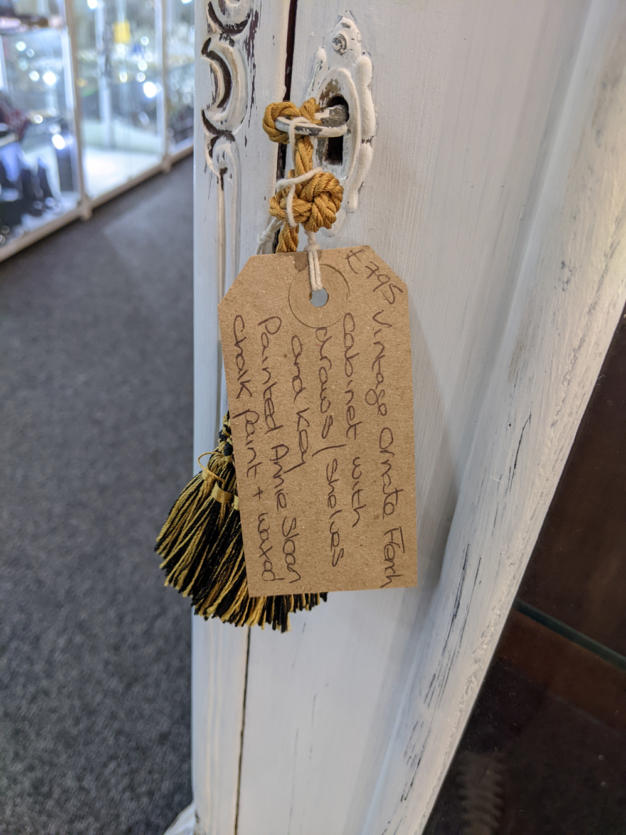 £795 Vintage Ornate Fench
Cabinet with
draws / Shelves
and Key
Painted Annie Sloan
Chalk Paint + waxed